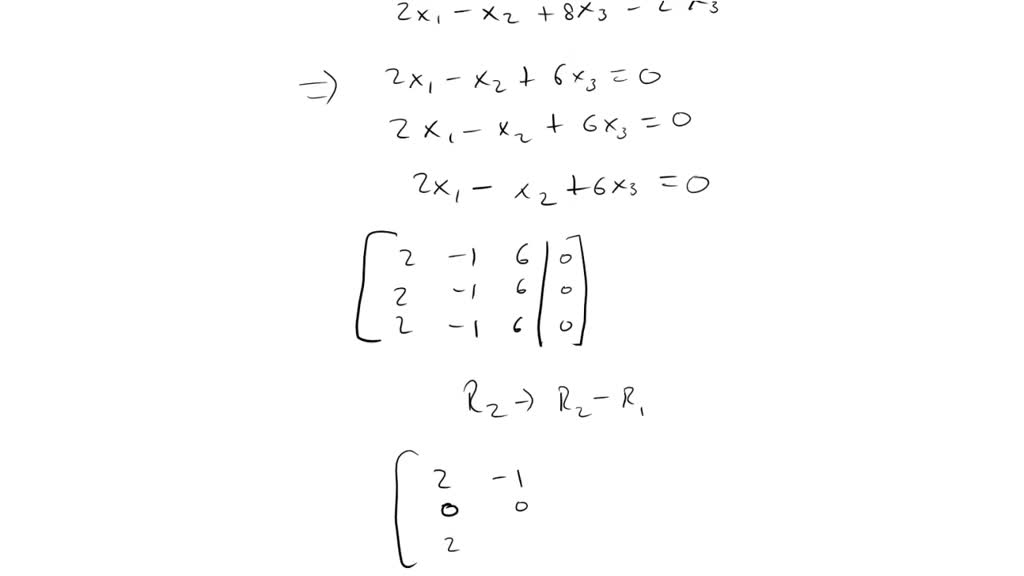 2x₁ - x₂ + 8x₃ -
⇒ 2x₁ - x₂ + 6x₃ = 0
2x₁ - x₂ + 6x₃ = 0
2x₁ - x₂ + 6x₃ = 0
2 -1 6 | 0
2 -1 6 | 0
2 -1 6 | 0
R₂ → R₂ - R₁
2 -1
0 0
2